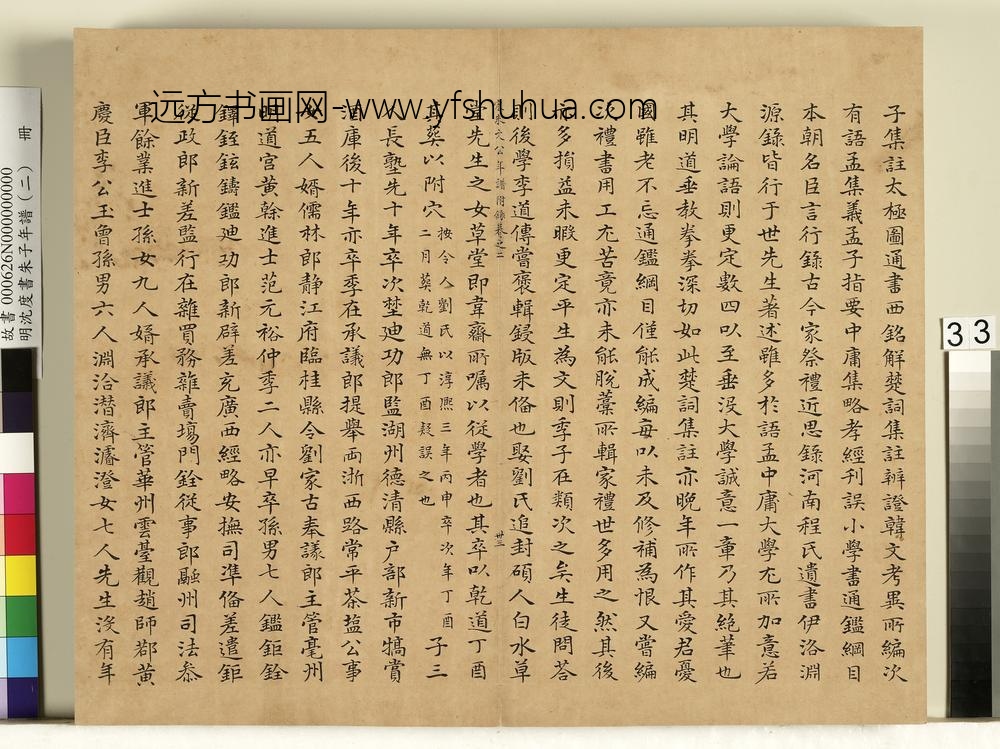 子集註太極圖通書西銘解楚詞集註辨證韓文考異所編次
有語孟集義孟子指要中庸集略孝經刊誤小學書通鑑綱目
本朝名臣言行錄古今家祭禮近思錄河南程氏遺書伊洛淵
源錄皆行于世先生著述雖多於語孟中庸大學尤所加意若
大學論語則更定數四以至垂没大學誠意一章乃其絕筆也
其明道垂教拳拳深切如此楚詞集註亦晚年所作其愛君憂
國雖老不忘通鑑綱目僅能成編每以未及修補為恨又嘗編
次禮書用工尤苦竟亦未能脫藁所輯家禮世多用之然其後
亦多損益未暇更定平生為文則季子在類次之矣生徒問荅
則後學李道傳嘗裒輯鋟版未俻也娶劉氏追封碩人白水草
朱文公年譜附錄卷之二
卅三
堂先生之女草堂即韋齋所囑以從學者也其卒以乾道丁酉
其葬以附穴
按令人劉氏以淳熈三年丙申卒次年丁酉
二月葬乾道無丁酉疑誤之也
子三
人長塾先十年卒次埜迪功郎監湖州德清縣户部新市犒賞
酒庫後十年亦卒季在承議郎提舉兩浙西路常平茶塩公事
女五人婿儒林郎靜江府臨桂縣令劉家古奉議郎主管亳州
明道宮黃榦進士范元裕仲季二人亦早卒孫男七人鑑鉅銓
鐸銍鉉鑄鑑迪功郎新辟差充廣西經略安撫司準俻差遣鉅
從政郎新差監行在雜買務雜賣塲門銓從事郎融州司法叅
軍餘業進士孫女九人婿承議郎主管華州雲臺觀趙師郡黃
慶臣李公玉曾孫男六人淵洽潜濟濬澄女七人先生没有年
远方书画网-www.yfshuhua.com
故書000626N000000000
明沈度書朱子年譜(二) 冊
33